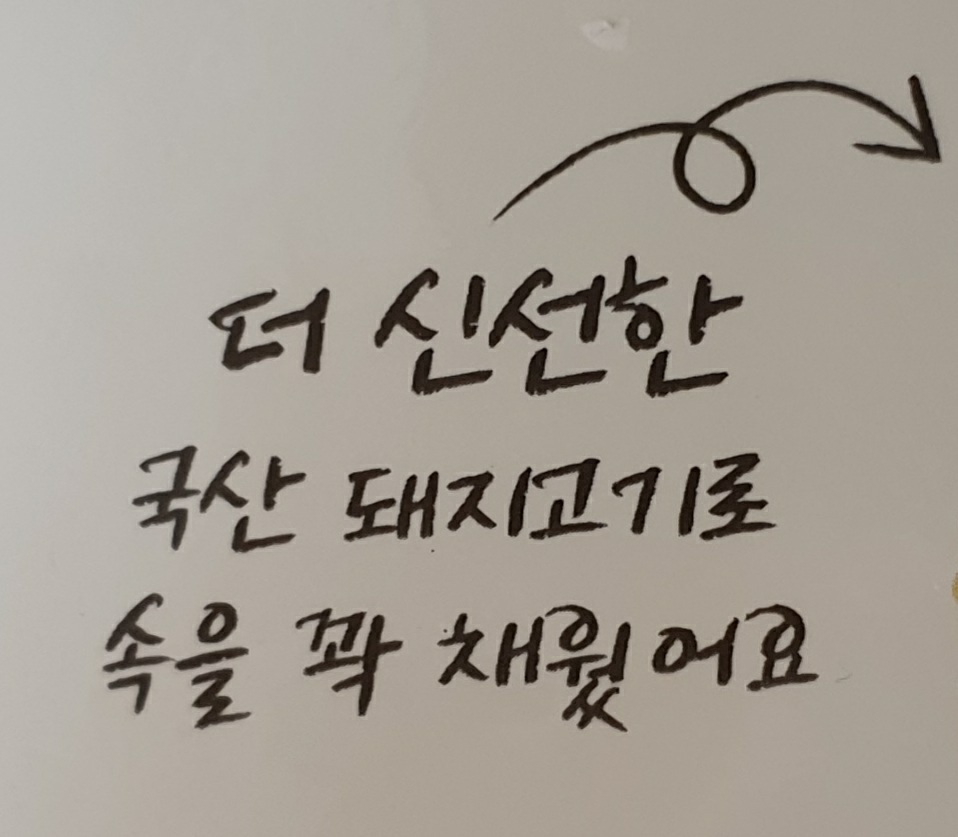 더 신선한
국산 돼지고기로
속을 꽉 채웠어요